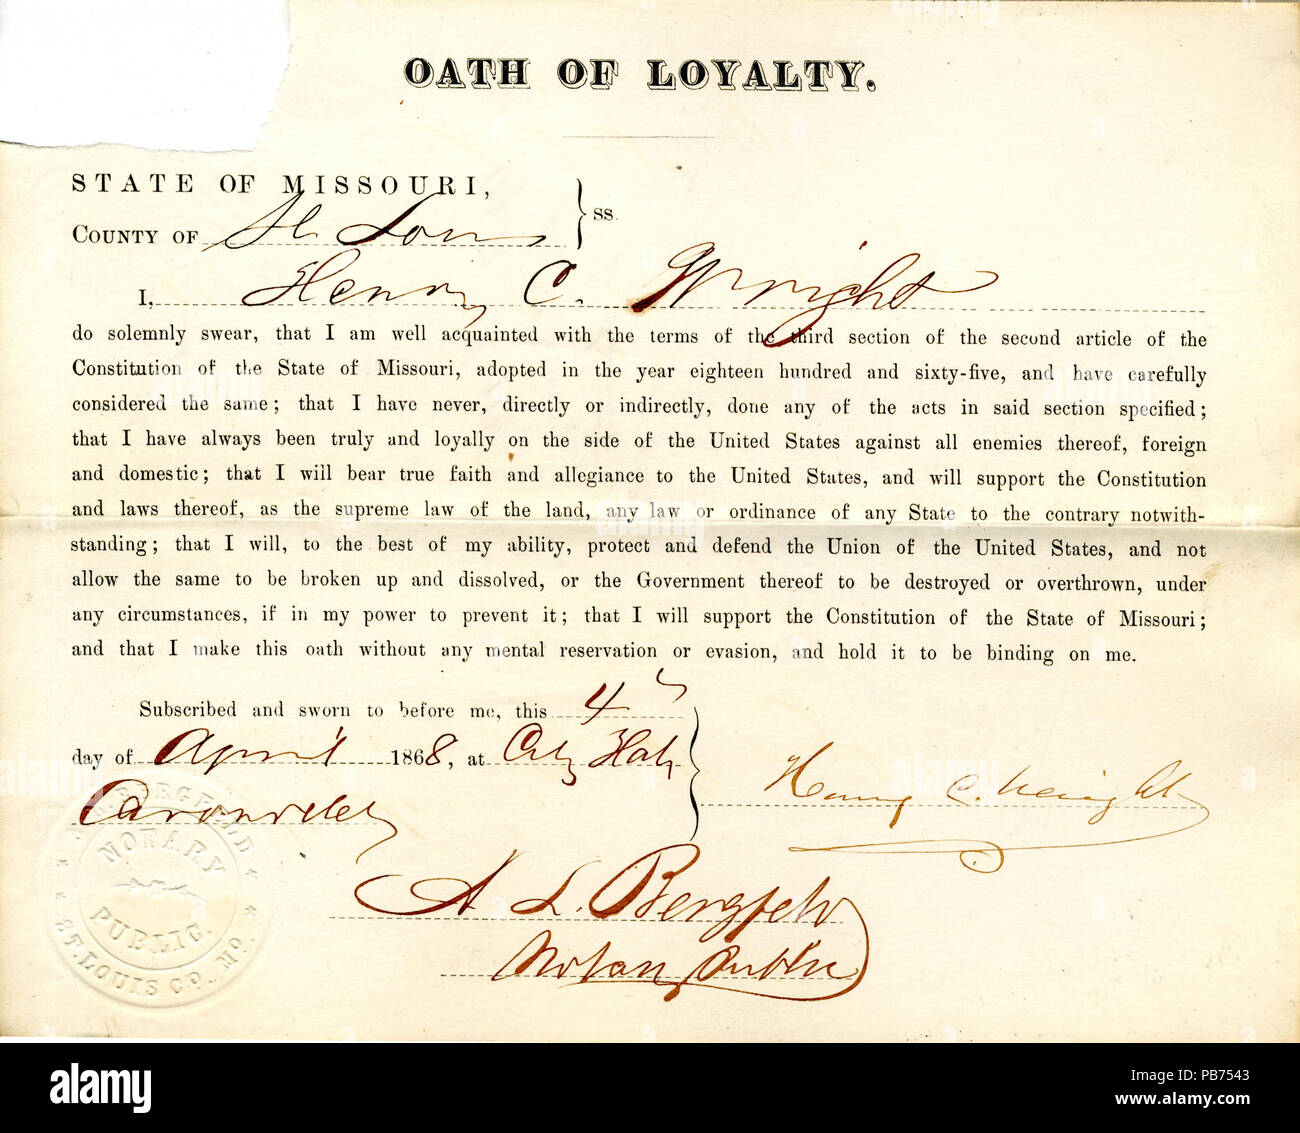 OATH OF LOYALTY.
STATE OF MISSOURI,
COUNTY OF St. Louis } ss.
I, Henry C. Wright
do solemnly swear, that I am well acquainted with the terms of the third section of the second article of the
Constitution of the State of Missouri, adopted in the year eighteen hundred and sixty-five, and have carefully
considered the same; that I have never, directly or indirectly, done any of the acts in said section specified;
that I have always been truly and loyally on the side of the United States against all enemies thereof, foreign
and domestic; that I will bear true faith and allegiance to the United States, and will support the Constitution
and laws thereof, as the supreme law of the land, any law or ordinance of any State to the contrary notwith-
standing; that I will, to the best of my ability, protect and defend the Union of the United States, and not
allow the same to be broken up and dissolved, or the Government thereof to be destroyed or overthrown, under
any circumstances, if in my power to prevent it; that I will support the Constitution of the State of Missouri;
and that I make this oath without any mental reservation or evasion, and hold it to be binding on me.
Subscribed and sworn to before me, this 4
day of April 1868, at City Hall
Carondelet
Henry C. Wright
A. L. Bergfeld
Notary Public
A. L. BERGFELD
NOTARY
PUBLIC.
ST. LOUIS CO. MO.
alamy
Image ID: PB7543
www.alamy.com